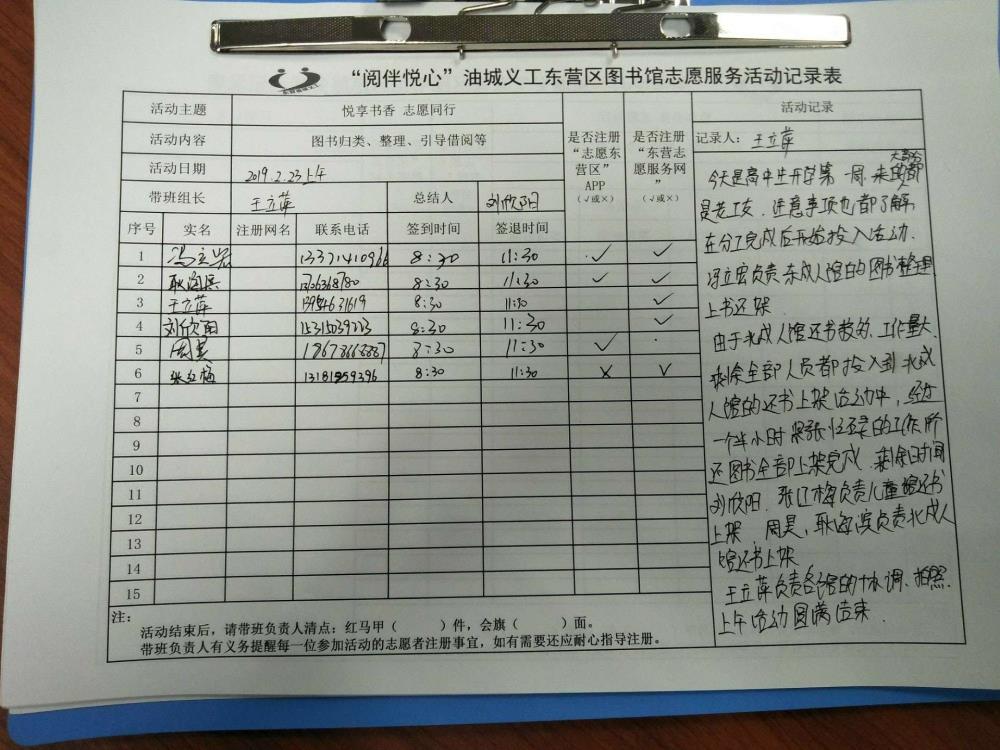 “阅伴悦心”油城义工东营区图书馆志愿服务活动记录表
活动主题 悦享书香 志愿同行 是否注册“志愿东营区”APP（√或×） 是否注册“东营志愿服务网”（√或×） 活动记录
活动内容 图书归类、整理、引导借阅等
记录人：王立萍
活动日期 2019.2.23上午
带班组长 王立萍 总结人 刘欣阳
序号 实名 注册网名 联系电话 签到时间 签退时间
1 冯立宏 8:30 11:30 √ √
2 耿海滨 8:30 11:30 √ √
3 王立萍 8:30 11:30 √
4 刘欣阳 8:30 11:30 √
5 周昊 8:30 11:30 √
6 张红梅 13181859396 8:30 11:30 × √
7
8
9
10
11
12
13
14
15
今天是高中生开学第一周，来的大部分都
是老工友，注意事项也都了解，
在分工完成后开始投入活动.
冯立宏负责东成人馆的图书整理
上书还架
由于北成人馆还书较多，工作量大，
剩余全部人员都投入到北成
人馆的还书上架活动中，经过
一个半小时紧张忙碌的工作，所
还图书全部上架完成.剩余时间
刘欣阳、张红梅负责儿童馆还书
上架，周昊，耿海滨负责北成人
馆还书上架
王立萍负责各馆的协调、拍照.
上午活动圆满结束.
注：
活动结束后，请带班负责人清点：红马甲（ ）件，会旗（ ）面。
带班负责人有义务提醒每一位参加活动的志愿者注册事宜，如有需要还应耐心指导注册。